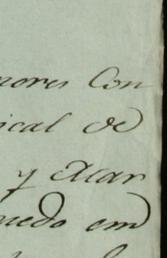 nores Con
ical de
y Atar
uedo em